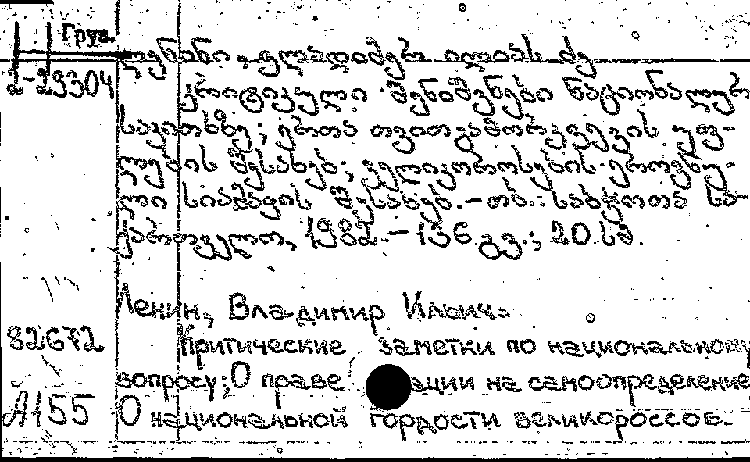 Груз.
ლენინი, ვლადიმერ ილიას ძე
2-29304
კრიტიკული შენიშვნები ნაციონალურ
საკითხზე; ერთა თვითგამორკვევის უფ-
ლების შესახებ; ველიკოროსების ეროვნუ-
ლი სიამაყის შესახებ. – თბ.: საბჭოთა სა-
ქართველო, 1982. – 136 გვ.; 20 სმ.
Ленин, Владимир Ильич.
82672 Критические заметки по национальному
вопросу; О праве ации на самоопределение
А155 О национальной гордости великороссов.-